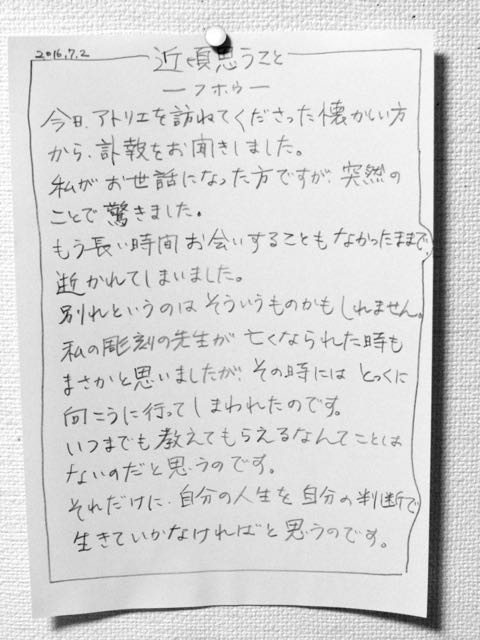 2016.7.2
近頃思うこと
―フホウ―
今日、アトリエを訪ねてくださった懐かしい方
から、訃報をお聞きしました。
私がお世話になった方ですが、突然の
ことで驚きました。
もう長い時間お会いすることもなかったままで、
逝かれてしまいました。
別れというのはそういうものかもしれません。
私の彫刻の先生が亡くなられた時も
まさかと思いましたが、その時にはとっくに
向こうに行ってしまわれたのです。
いつまでも教えてもらえるなんてことは
ないのだと思うのです。
それだけに、自分の人生を自分の判断で
生きていかなければと思うのです。